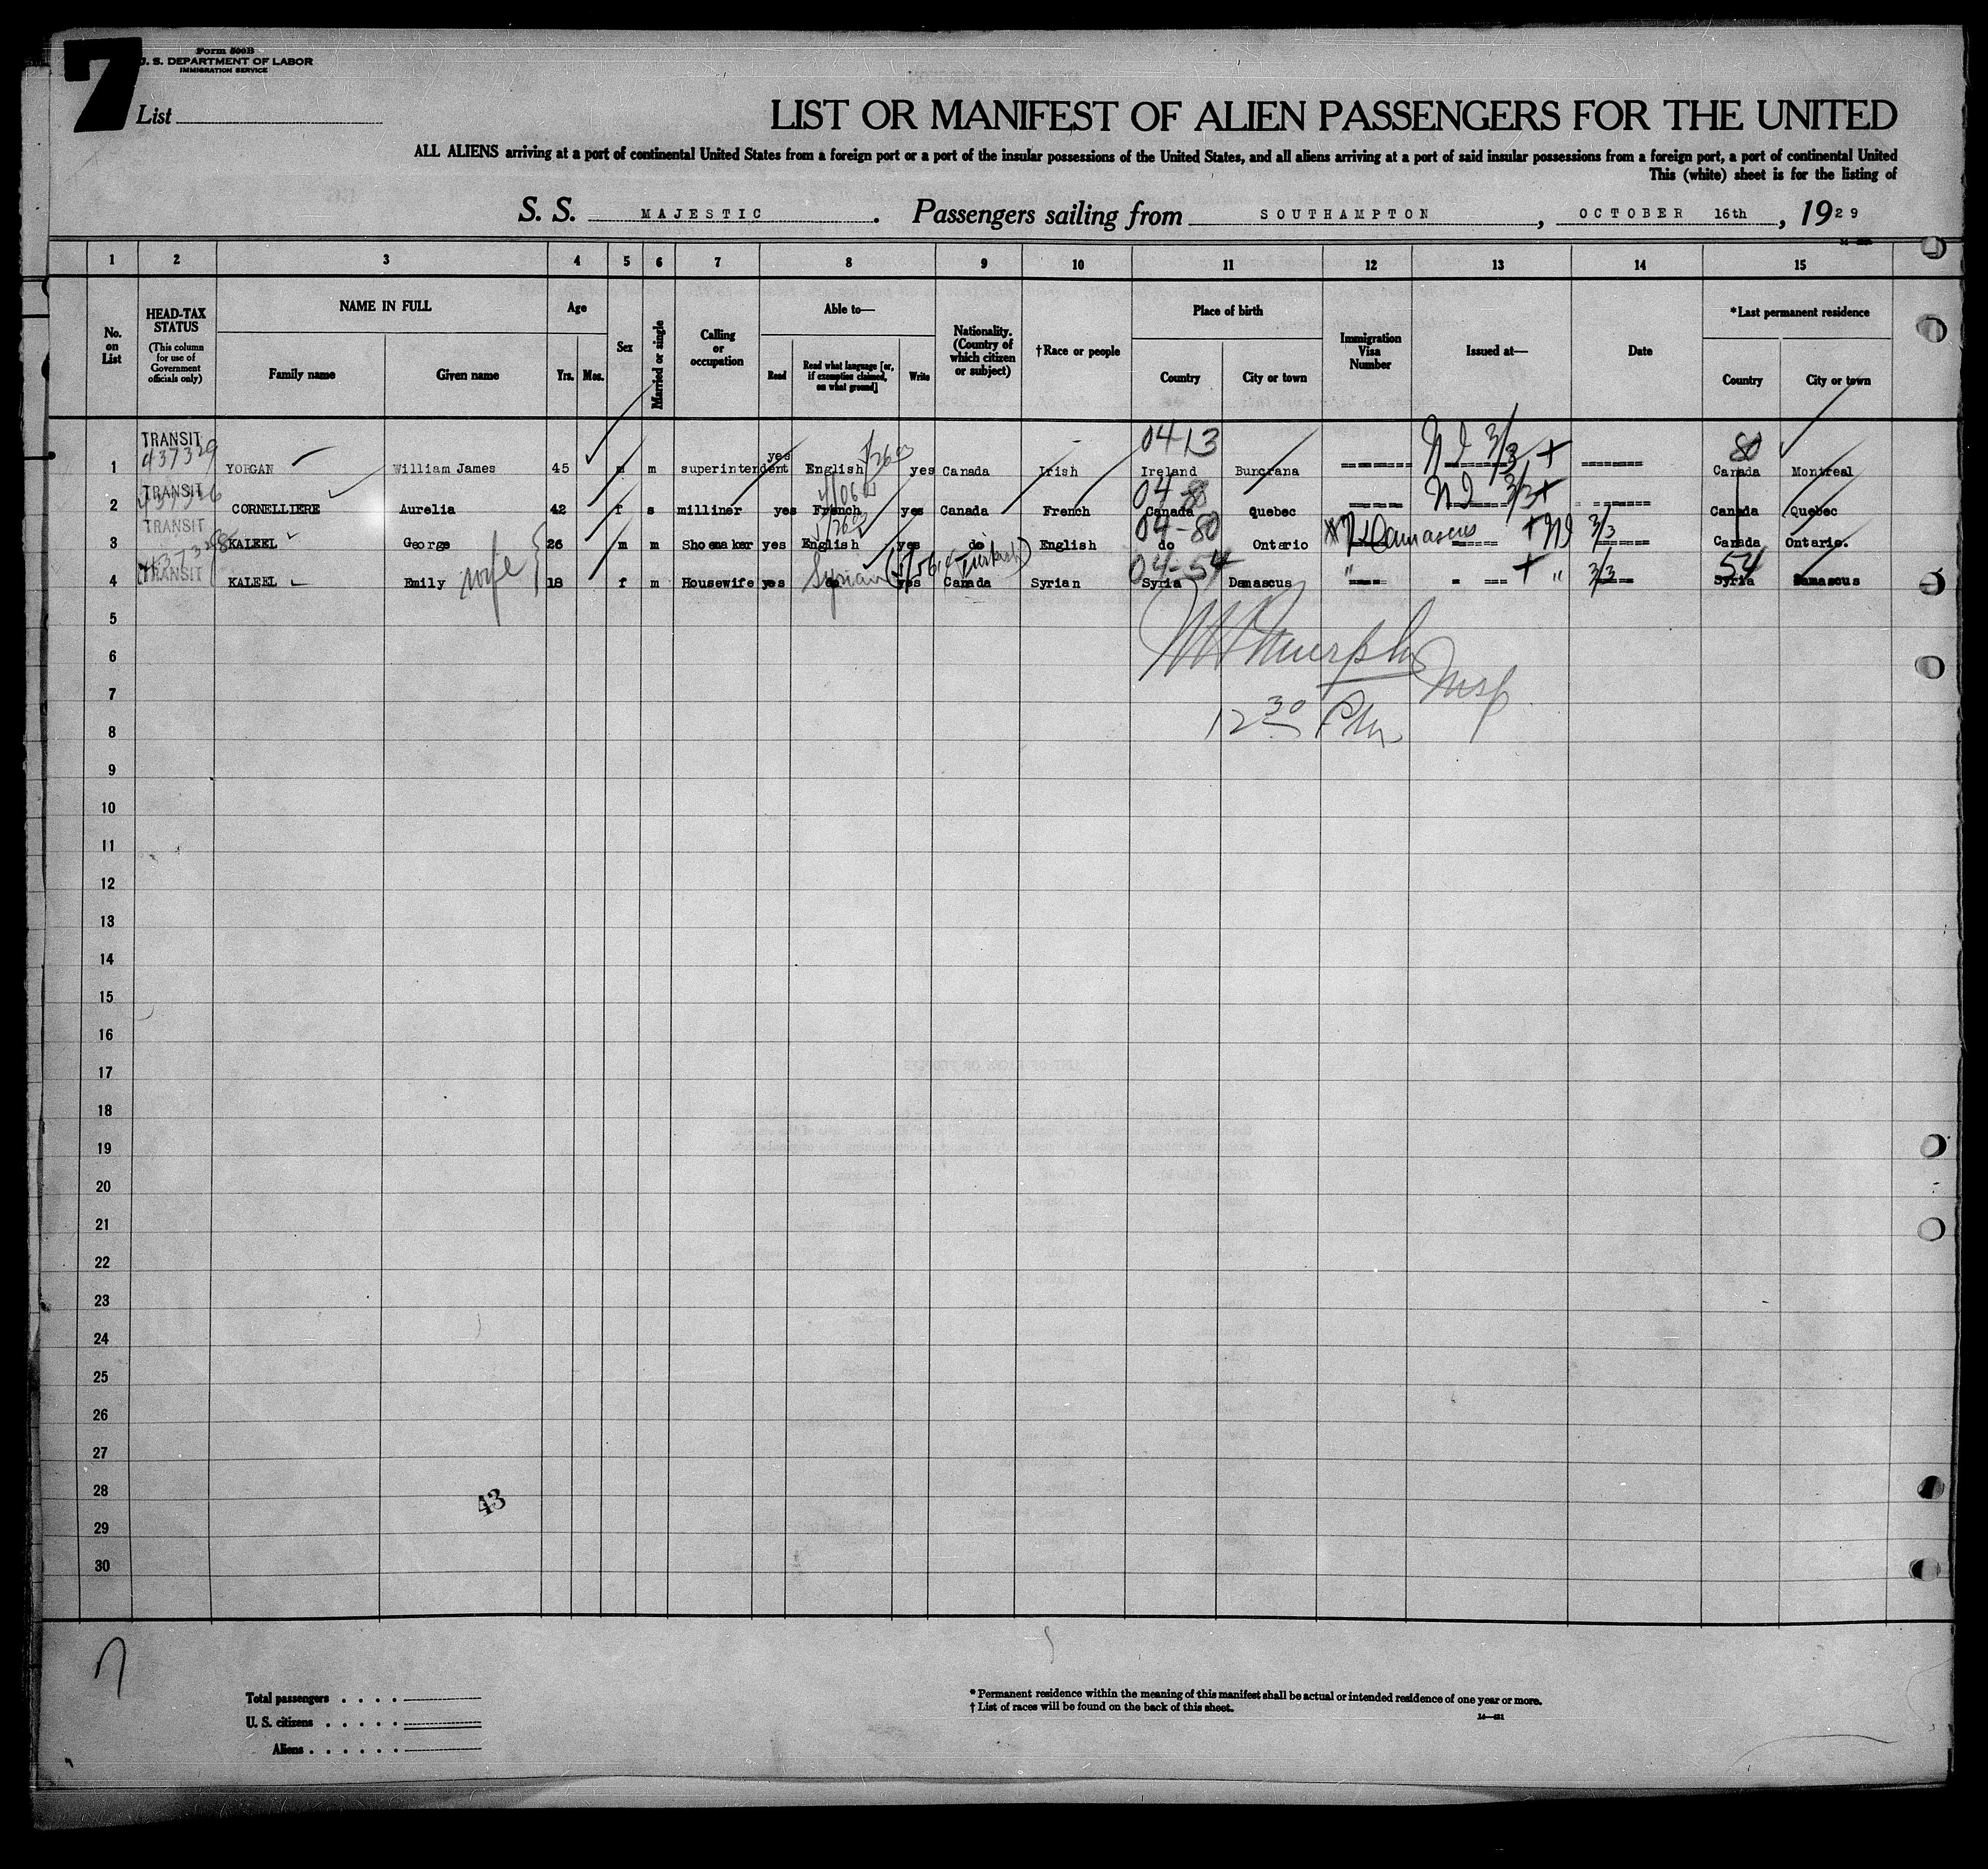 7
Form 500B
U. S. DEPARTMENT OF LABOR
IMMIGRATION SERVICE
List
LIST OR MANIFEST OF ALIEN PASSENGERS FOR THE UNITED
ALL ALIENS arriving at a port of continental United States from a foreign port or a port of the insular possessions of the United States, and all aliens arriving at a port of said insular possessions from a foreign port, a port of continental United
This (white) sheet is for the listing of
S. S. MAJESTIC . Passengers sailing from SOUTHAMPTON , OCTOBER 16th , 1929
1 2 3 4 5 6 7 8 9 10 11 12 13 14 15
No. on List
HEAD-TAX STATUS
(This column for use of Government officials only)
NAME IN FULL
Family name
Given name
Age
Yrs. Mos.
Sex
Married or single
Calling or occupation
Able to—
Read
Read what language [or, if exemption claimed, on what ground]
Write
Nationality. (Country of which citizen or subject)
†Race or people
Place of birth
Country
City or town
Immigration Visa Number
Issued at—
Date
*Last permanent residence
Country
City or town
TRANSIT 437329 04-13 NI 3/3 + 80
1 YORGAN William James 45 m m superintendent yes English yes Canada Irish Ireland Buncrana Canada Montreal
TRANSIT 04-8 NI 3/3+
2 CORNELLIERE Aurelia 42 f s milliner yes French yes Canada French Canada Quebec Canada Quebec
TRANSIT 04-80 Damascus + NI 3/3
3 KALEEL George 26 m m Shoemaker yes English yes do English do Ontario Canada Ontario.
TRANSIT wife Syrian Turkish 04-54 " + " 3/3 54
4 KALEEL Emily 18 f m Housewife yes do yes Canada Syrian Syria Damascus Syria Damascus
5
6
Murphy
7
8
12 30 Pm
9
10
11
12
13
14
15
16
17
18
19
20
21
22
23
24
25
26
27
28
43
29
30
7
Total passengers . . . .
U. S. citizens . . . . .
Aliens . . . . . .
* Permanent residence within the meaning of this manifest shall be actual or intended residence of one year or more.
† List of races will be found on the back of this sheet.